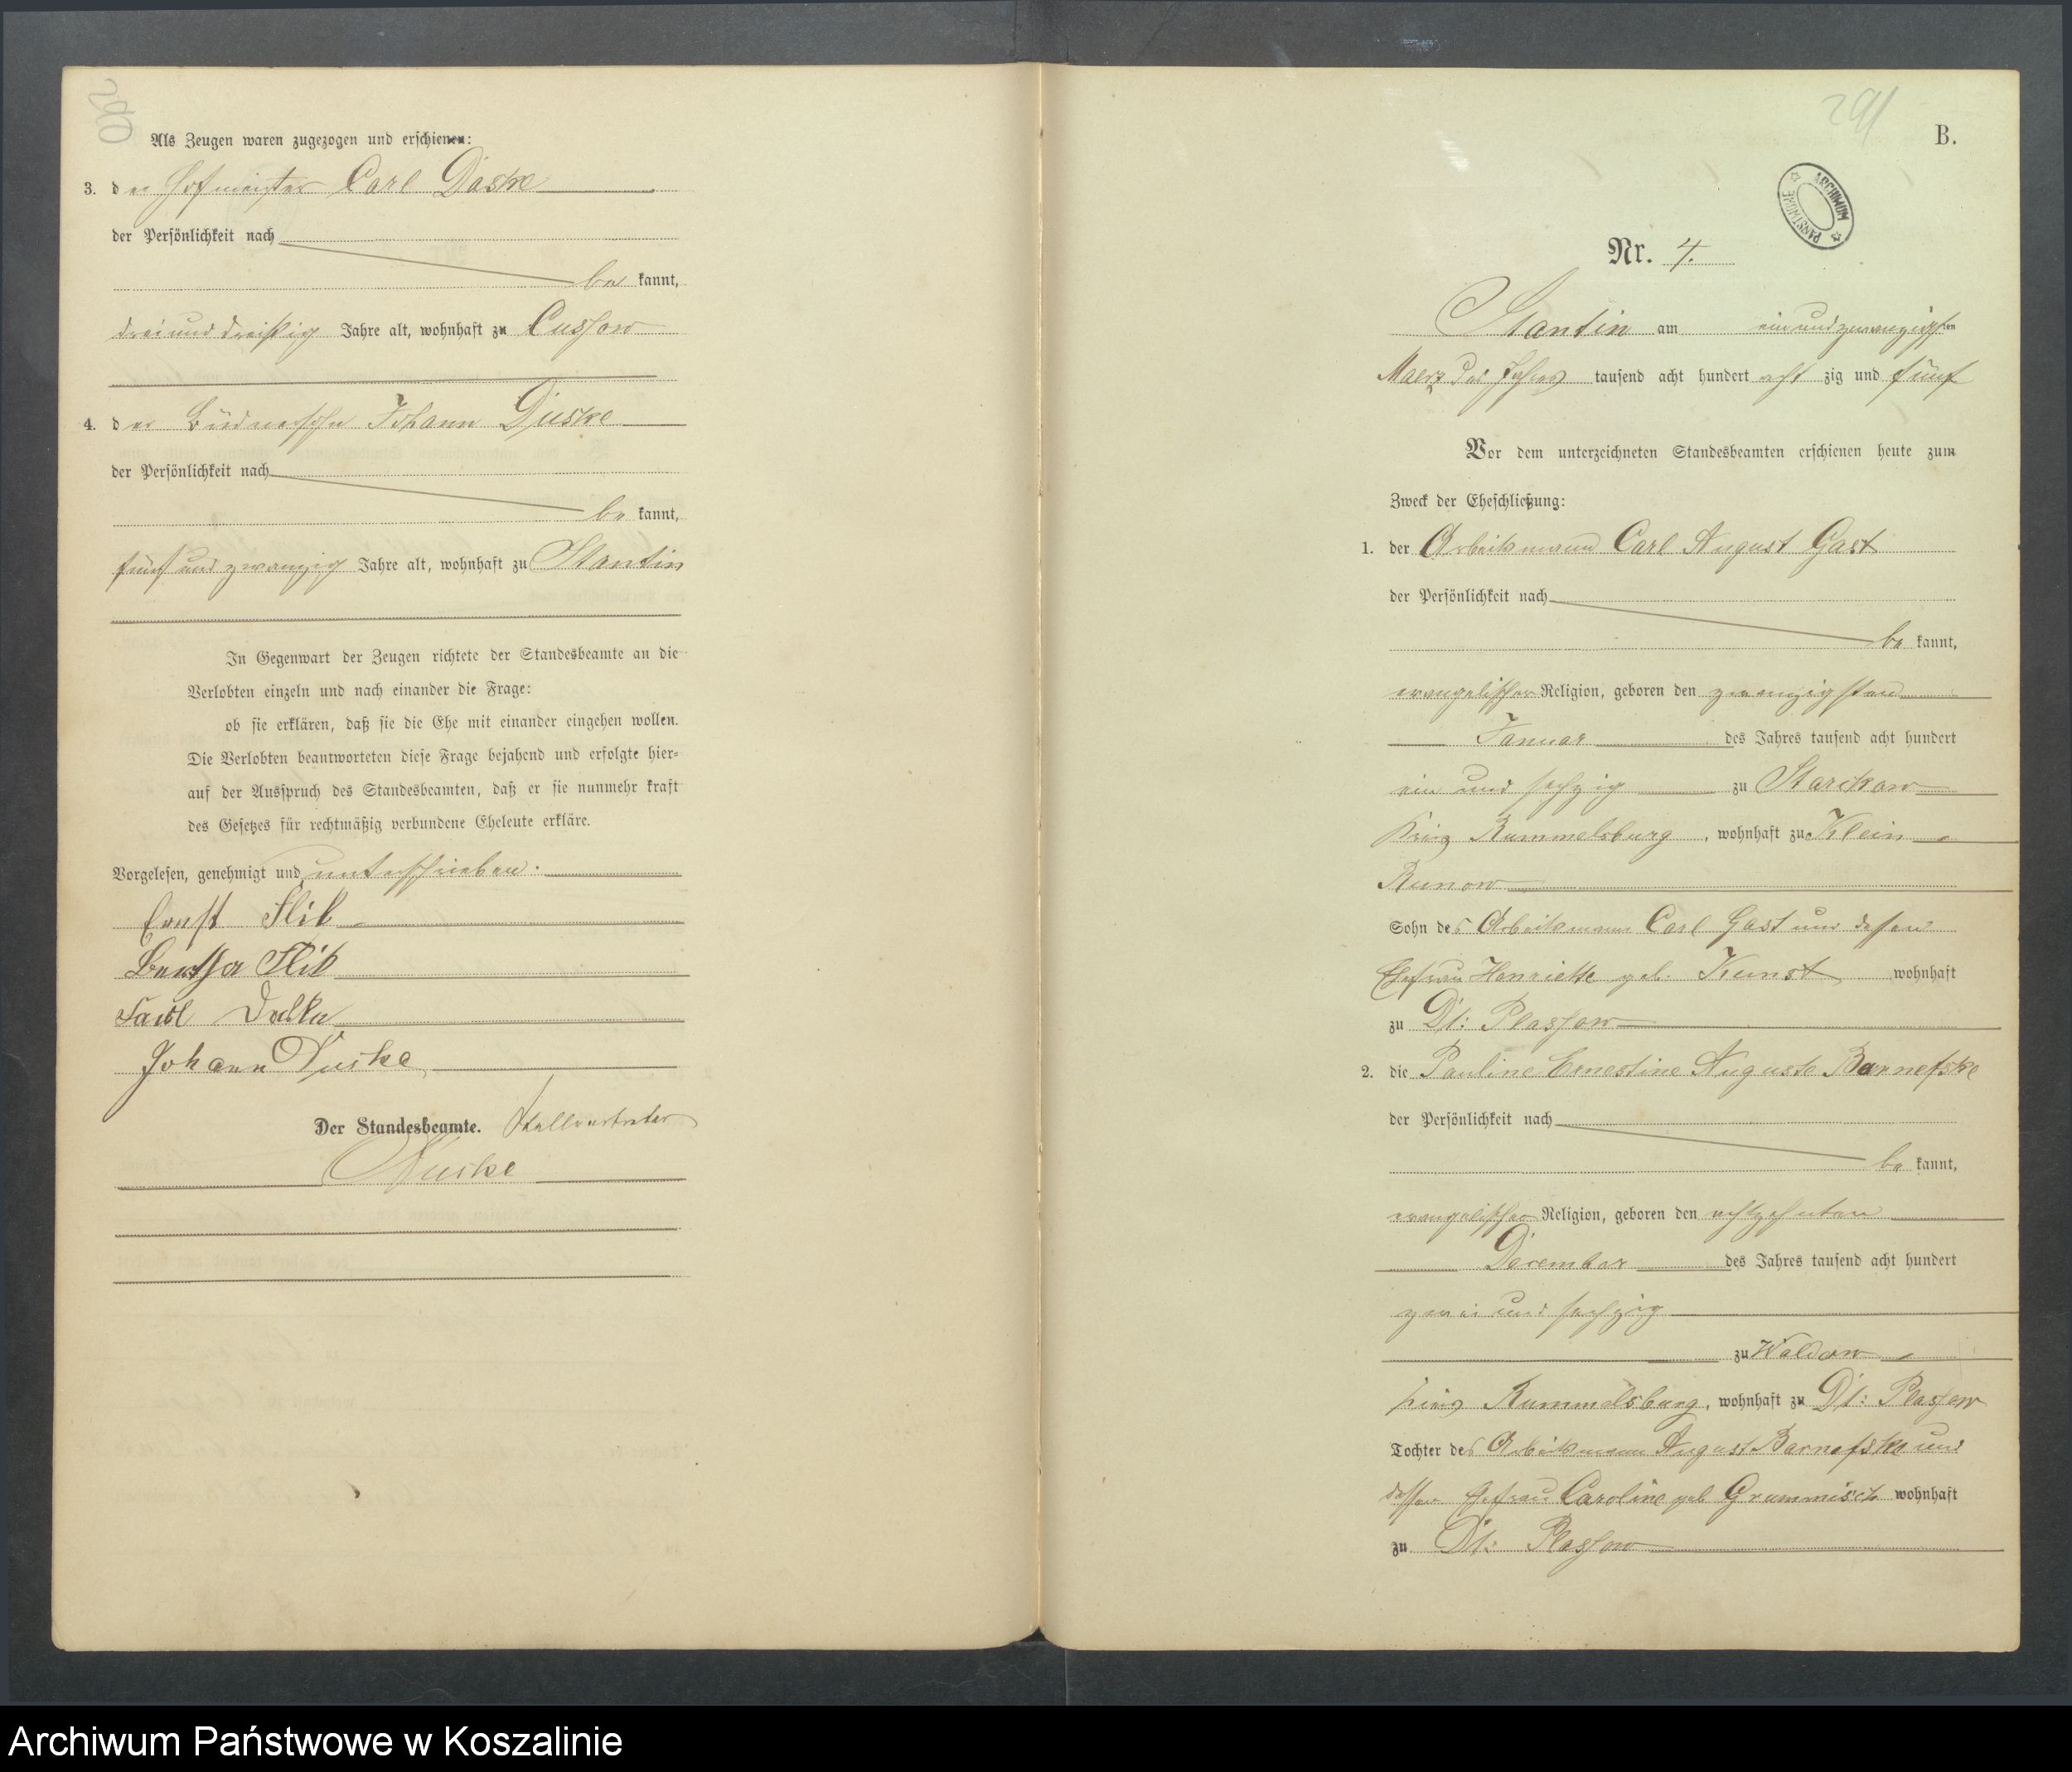 Als Zeugen waren zugezogen und erschienen:
3. der Hofmeister Carl Daske
der Persönlichkeit nach
be kannt,
drei und dreißig Jahre alt, wohnhaft zu Cussow
4. der Büdnersohn Johann Duske
der Persönlichkeit nach
be kannt,
fünf und zwanzig Jahre alt, wohnhaft zu Stantin
In Gegenwart der Zeugen richtete der Standesbeamte an die
Verlobten einzeln und nach einander die Frage:
ob sie erklären, daß sie die Ehe mit einander eingehen wollen.
Die Verlobten beantworteten diese Frage bejahend und erfolgte hier-
auf der Ausspruch des Standesbeamten, daß er sie nunmehr kraft
des Gesetzes für rechtmäßig verbundene Eheleute erkläre.
Vorgelesen, genehmigt und unterschrieben.
Ernst
Bertha
Johann Duske
Der Standesbeamte. Stellvertreter
Duske
291
B.
ARCHIWUM PAŃSTWOWE
Nr. 4.
Stantin am ein und zwanzigsten
Maerz des Jahres tausend acht hundert acht zig und fünf
Vor dem unterzeichneten Standesbeamten erschienen heute zum
Zweck der Eheschließung:
1. der Arbeitsmann Carl August Gast
der Persönlichkeit nach
be kannt,
evangelischer Religion, geboren den zwanzigsten
Januar des Jahres tausend acht hundert
ein und sechzig zu Starckow
Kreis Rummelsburg, wohnhaft zu Klein
Runow
Sohn des Arbeitsmann Carl Gast und dessen
Ehefrau Henriette geb. Kunst wohnhaft
zu Dt: Plassow
2. die Pauline Ernestine Auguste Barnefske
der Persönlichkeit nach
be kannt,
evangelischer Religion, geboren den achtzehnten
December des Jahres tausend acht hundert
zwei und sechzig
zu Waldow
Kreis Rummelsburg, wohnhaft zu Dt: Plassow
Tochter des Arbeitsmann August Barnefske und
dessen Ehefrau Caroline geb Grummisch wohnhaft
zu Dt: Plassow
Archiwum Państwowe w Koszalinie